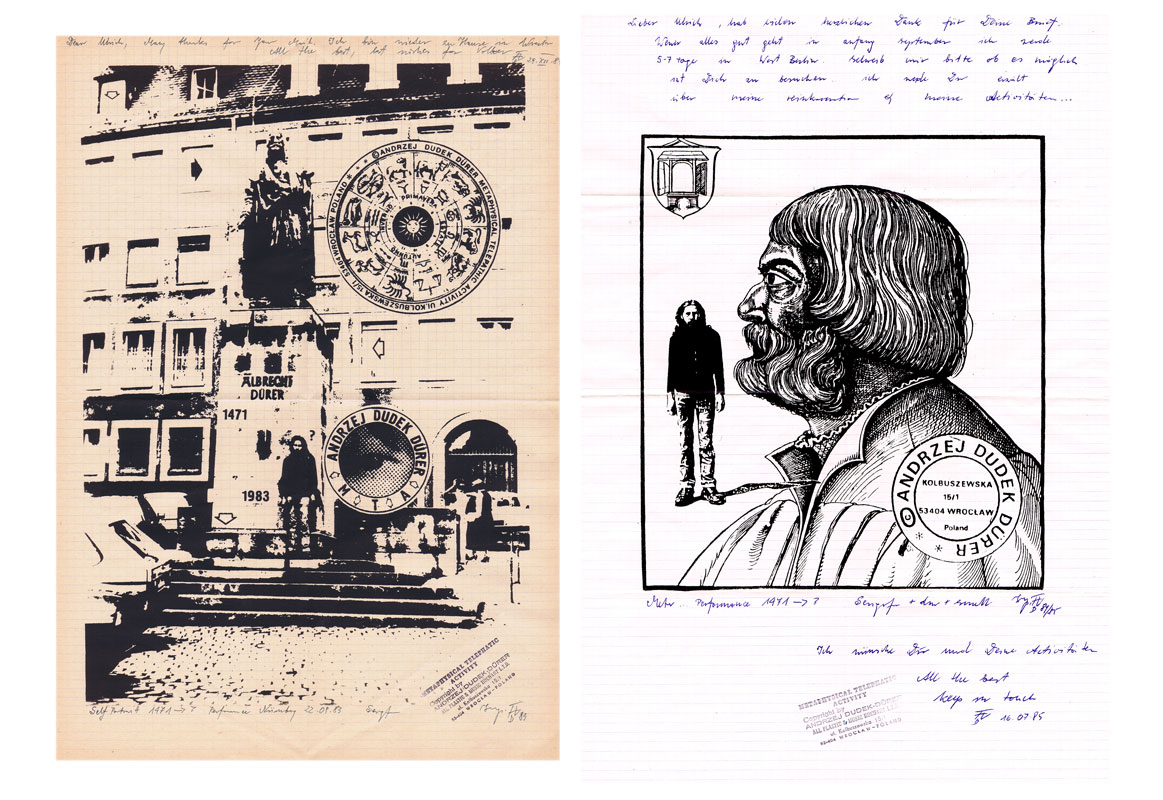 Dear Ulrich, Many thanks for Your Mail. Ich bin wieder zu Hause in
All the best,
ALBRECHT
DÜRER
1471
1983
© ANDRZEJ DUDEK DÜRER METAPHYSICAL TELEPATHIC ACTIVITY UL.KOLBUSZEWSKA 15/1 53404 WROCLAW POLAND
PRIMAVERA
ESTATE
AUTUNNO
ANDRZEJ DUDEK DÜRER
METAPHYSICAL TELEPHATIC
ACTIVITY
Copyright by
ANDRZEJ DUDEK-DÜRER
ul. Kolbuszewska 15/1
WROCŁAW-POLAND
Performance Nürnberg 22.07.83
Lieber Ulrich, hab vielen herzlichen Dank für Deine Brief.
Wenn alles gut geht in anfang september ich werde
5-7 tage in West Berlin. Schreib mir bitte ob es möglich
ist Dich zu besuchen. ich werde Dir
über meine Activitäten...
© ANDRZEJ DUDEK DÜRER * *
KOLBUSZEWSKA
15/1
53404 WROCŁAW
Poland
Performance 1471 → ?
Ich wünsche Dir und Deine Activitäten
All the best
keep in touch
16.07.85
METAPHYSICAL TELEPHATIC
ACTIVITY
Copyright by
ANDRZEJ DUDEK-DÜRER
ul. Kolbuszewska 15/1
WROCŁAW-POLAND